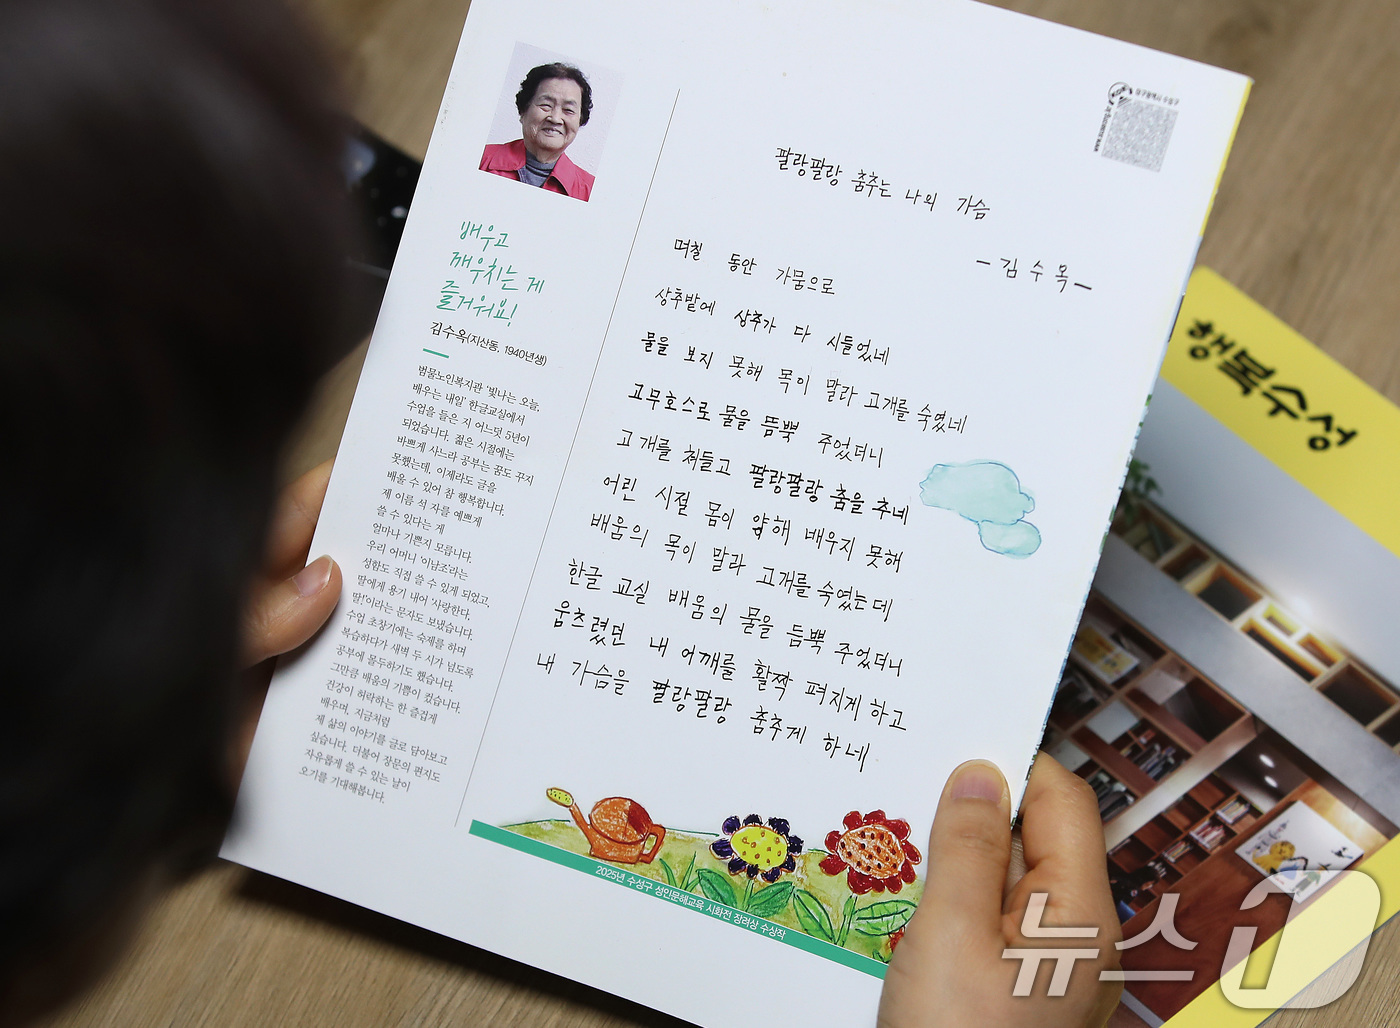 배우고
깨우치는 게
즐거워요!
김수옥(지산동, 1940년생)
범물노인복지관 '빛나는 오늘,
배우는 내일' 한글교실에서
수업을 들은 지 어느덧 5년이
되었습니다. 젊은 시절에는
바쁘게 사느라 공부는 꿈도 꾸지
못했는데, 이제라도 글을
배울 수 있어 참 행복합니다.
제 이름 석 자를 예쁘게
쓸 수 있다는 게
얼마나 기쁜지 모릅니다.
우리 어머니 '이남조'라는
성함도 직접 쓸 수 있게 되었고,
딸에게 용기 내어 '사랑한다.
딸!'이라는 문자도 보냈습니다.
수업 초창기에는 숙제를 하며
복습하다가 새벽 두 시가 넘도록
공부에 몰두하기도 했습니다.
그만큼 배움의 기쁨이 컸습니다.
건강이 허락하는 한 즐겁게
배우며, 지금처럼
제 삶의 이야기를 글로 담아보고
싶습니다. 더불어 장문의 편지도
자유롭게 쓸 수 있는 날이
오기를 기대해봅니다.
대구광역시 수성구
팔랑팔랑 춤추는 나의 가슴
-김수옥-
며칠 동안 가뭄으로
상추밭에 상추가 다 시들었네
물을 보지 못해 목이 말라 고개를 숙였네
고무호스로 물을 듬뿍 주었더니
고개를 쳐들고 팔랑팔랑 춤을 추네
어린 시절 몸이 약해 배우지 못해
배움의 목이 말라 고개를 숙였는데
한글 교실 배움의 물을 듬뿍 주었더니
움츠렸던 내 어깨를 활짝 펴지게 하고
내 가슴을 팔랑팔랑 춤추게 하네
2025년 수성구 성인문해교육 시화전 장려상 수상작
행복수성
뉴스1